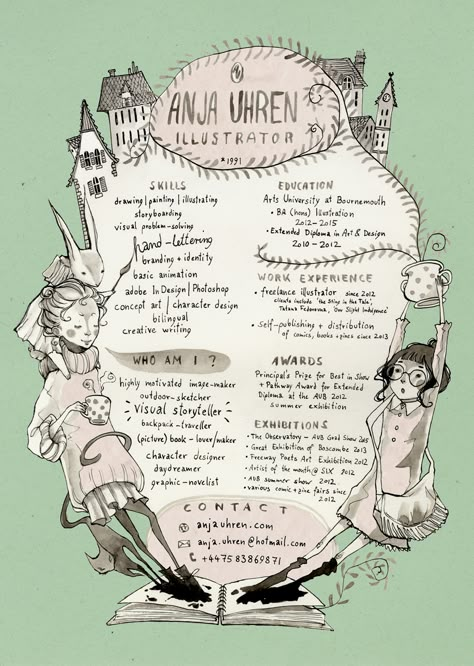 ANJA UHREN
ILLUSTRATOR
*1991
SKILLS
drawing | painting | illustrating
storyboarding
visual problem-solving
hand-lettering
branding + identity
basic animation
adobe InDesign | Photoshop
concept art | character design
bilingual
creative writing
WHO AM I ?
highly motivated image-maker
outdoor-sketcher
visual storyteller
backpack-traveller
(picture) book-lover/maker
character designer
daydreamer
graphic-novelist
EDUCATION
Arts University at Bournemouth
• BA (hons) Illustration
2012-2015
• Extended Diploma in Art & Design
2010-2012
WORK EXPERIENCE
• freelance illustrator since 2012
clients include 'the Sting in the Tale',
Fedorova, 'Dow Slight Indulgence'
• Self-publishing + distribution
of comics, books + zines since 2013
AWARDS
Principal's Prize for Best in Show
+ Pathway Award for Extended
Diploma at the AUB 2012
summer exhibition
EXHIBITIONS
• The Observatory - AUB Grad Show 2015
• Great Exhibition of Boscombe 2013
• Freeway Poets Art Exhibition 2012
• Artist of the month @ SLX 2012
• AUB summer show 2012
• various comic + zine fairs since
2012
CONTACT
anjauhren.com
anja.uhren@hotmail.com
+4475 83869871